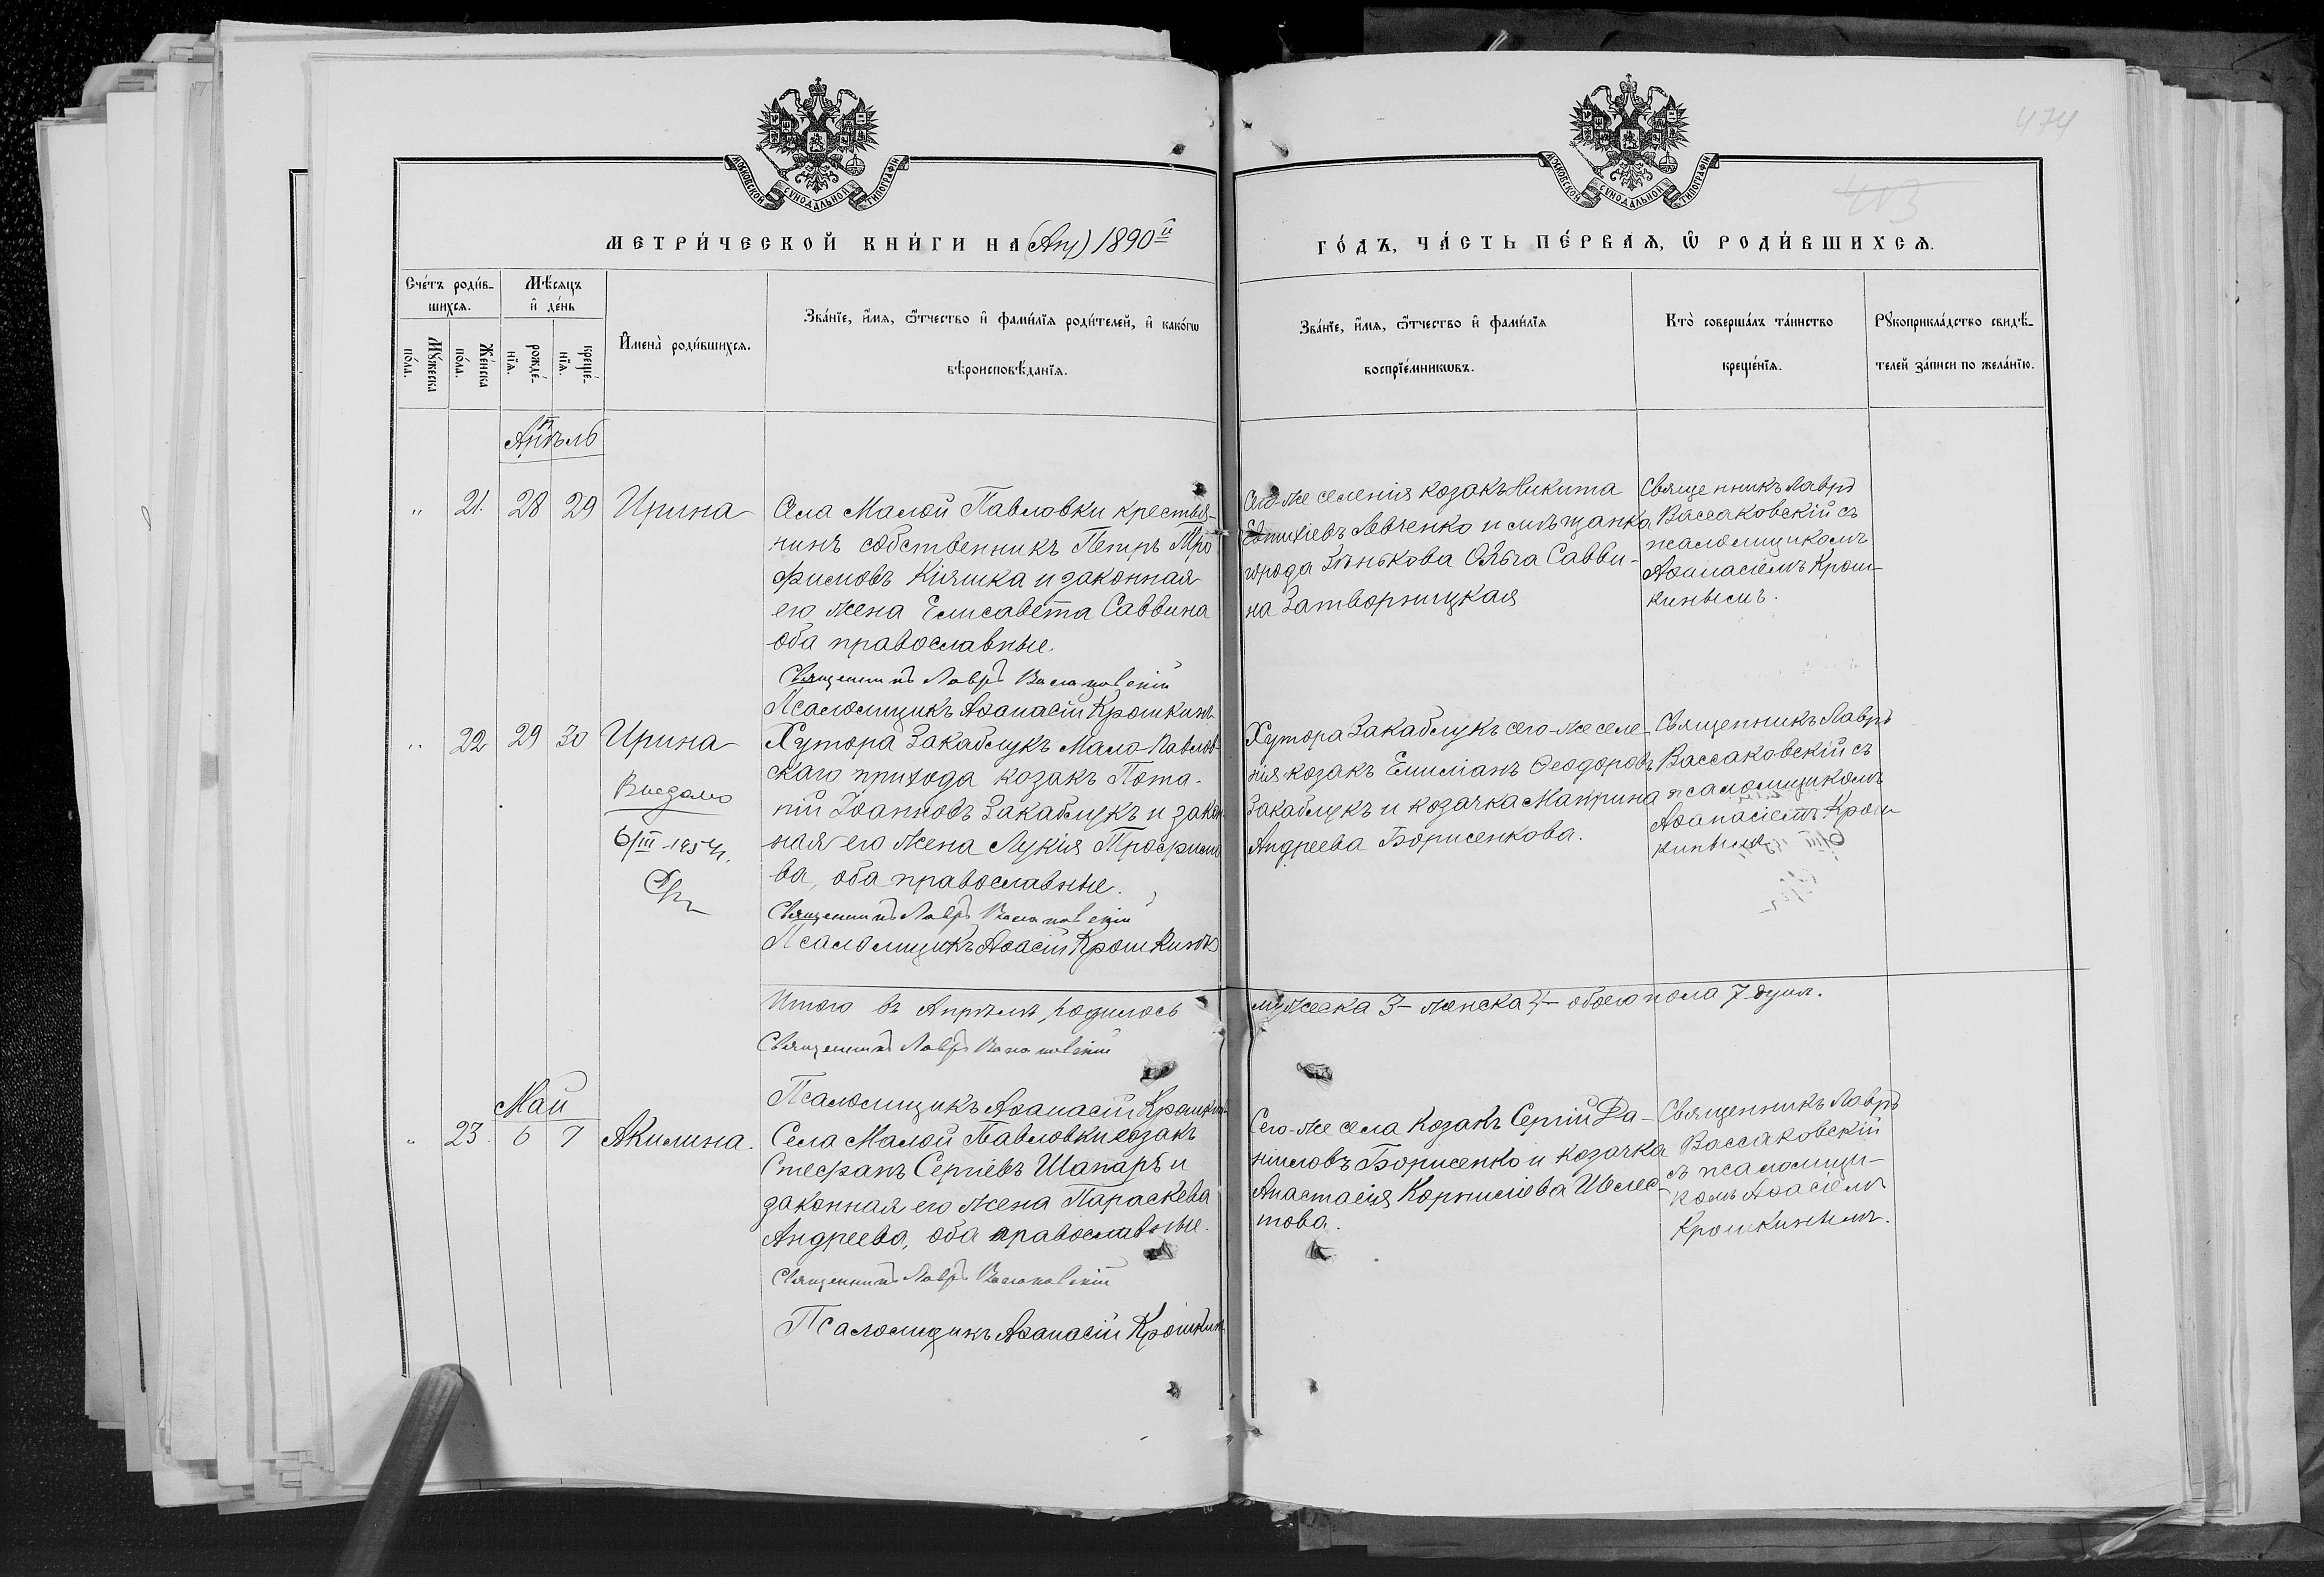 474
413
МОСКОВСКОЙ СУНОДАЛЬНОЙ ТИПОГРАФІИ
МОСКОВСКОЙ СУНОДАЛЬНОЙ ТИПОГРАФІИ
МЕТРИ́ЧЕСКОЙ КНИ́ГИ НА (Апр) 1890й
ГО́ДЪ, ЧА́СТЬ ПЕ́РВАѦ, Ѿ РОДИ́ВШИХСѦ.
Сче́тъ роди́в-
шихсѧ.
Му́жеска
по́ла.
Же́нска
по́ла.
Мѣ́сѧцъ
и҆ де́нь
рожде́-
нїѧ.
креще́-
нїѧ.
И҆мена̀ роди́вшихсѧ.
Зва́нїе, и҆́мѧ, ѻ҆́тчество и҆ фами́лїѧ роди́телей, и҆ како́гѡ
вѣроисповѣ́данїѧ.
Зва́нїе, и҆́мѧ, ѻ҆́тчество и҆ фами́лїѧ
воспрїе́мникѡвъ.
Кто̀ соверша́лъ та́инство
креще́нїѧ.
Рꙋкоприкла́дство свидѣ́-
телей за́писи по жела́нїю.
Апрѣль
" 21. 28 29 Ирина
Села Малой Павловки крестья-
нинъ собственникъ Петръ Тро
фимовъ Кіяшка и законная
его жена Елисавета Саввина
оба православные.
Священникъ Лавръ Вассаковскій
Псаломщикъ Аѳанасій Крошкинъ
Сего-же селенія козакъ Никита
Евтихіевъ Левченко и мѣщанка
города Зѣнькова Ольга Савви-
на Затворницкая
Священникъ Лавръ
Вассаковскій съ
псаломщикомъ
Аѳанасіемъ Крош-
кинымъ.
" 22 29 30 Ирина
Выдано
6/III-1954
Хутора Закаблукъ Мало-Павлов
скаго прихода козакъ Пота-
пій Іоанновъ Закаблукъ и закон-
ная его жена Лукія Трофимо
ва, оба православные.
Священникъ Лавръ Вассаковскій
Псаломщикъ Аѳасій Крошкинъ
Хутора Закаблукъ сего-же селе-
нія козакъ Емиліанъ Ѳеодоровъ
Закаблукъ и козачка Макрина
Андреева Борисенкова.
Священникъ Лавръ
Вассаковскій съ
псаломщикомъ
Аѳанасіемъ Крош-
кинымъ
Итого въ Апрѣлѣ родилось
мужеска 3- женска 4- обоего пола 7 душъ.
Священникъ Лавръ Вассаковскій
Псаломщикъ Аѳанасій Крошкинъ
Май
" 23. 6 7 Акилина.
Села Малой Павловки козакъ
Стефанъ Сергіевъ Шапаръ и
законная его жена Параскева
Андреева, оба православные.
Священникъ Лавръ Вассаковскій
Псаломщикъ Аѳанасій Крошкинъ
Сего-же села козакъ Сергій Да-
ніиловъ Борисенко и козачка
Анастасія Корниліева Шелес-
това.
Священникъ Лавръ
Вассаковскій
съ псаломщи-
комъ Аѳасіемъ
Крошкинымъ.